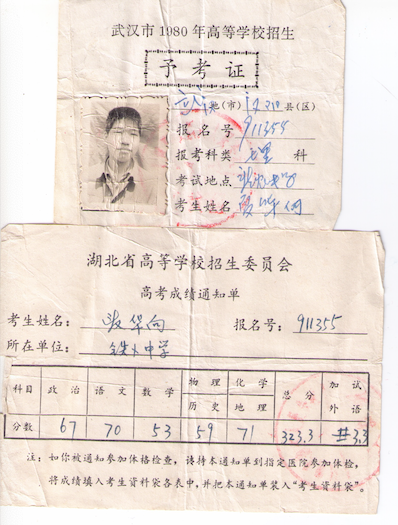 武汉市1980年高等学校招生
予考证
地(市) 县(区)
报名号 911355
报考科类 理 科
考试地点
考生姓名
湖北省高等学校招生委员会
高考成绩通知单
考生姓名： 报名号：911355
所在单位： 中学
科目 政治 语文 数学 物理 化学 总分 加试
历史 地理 外语
分数 67 70 53 59 71 323.3 #3.3
注：如你被通知参加体格检查，请持本通知单到指定医院参加体检，
将成绩填入考生资料袋各表中，并把本通知单装入“考生资料袋”。